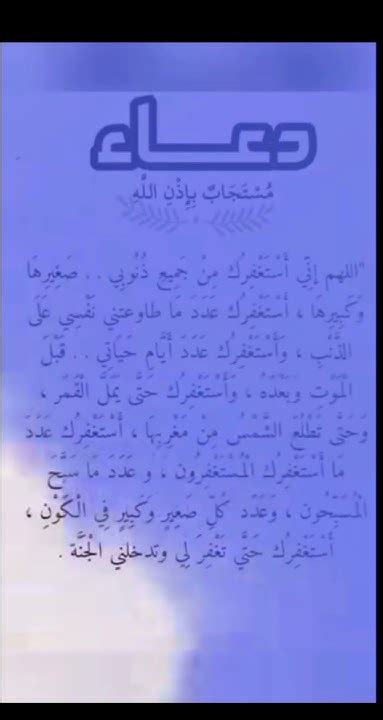 دعاء
مُسْتَجَابٌ بِإِذْنِ اللَّهِ
"اللهم إنِّي أَسْتَغْفِرُكَ مِنْ جَمِيعِ ذُنُوبِي . . صَغِيرِهَا
وَكَبِيرِهَا ، أَسْتَغْفِرُكَ عَدَدَ مَا طاوعتني نَفْسِي عَلَى
الذَّنْبِ ، وَأَسْتَغْفِرُكَ عَدَدَ أَيَّامِ حَيَاتِي . . قَبْلَ
الْمَوْتِ وَبَعْدَهُ ، وَأَسْتَغْفِرُكَ حَتَّى يَمَلَّ الْقَمَرِ ،
وَحَتَّى تَطْلُعَ الشَّمْسُ مِنْ مَغْرِبِهَا ، أَسْتَغْفِرُكَ عَدَدَ
مَا أَسْتَغْفِرُكَ الْمُسْتَغْفِرُون ، و عَدَدَ مَا سَبَّحَ
الْمُسَبِّحُون ، وَعَدَدَ كُلِّ صَغِيرٍ وَكَبِيرٍ فِي الْكَوْنِ ،
أَسْتَغْفِرُك حَتَّي تَغْفِرَ لِي وتدخلني الْجَنَّة .